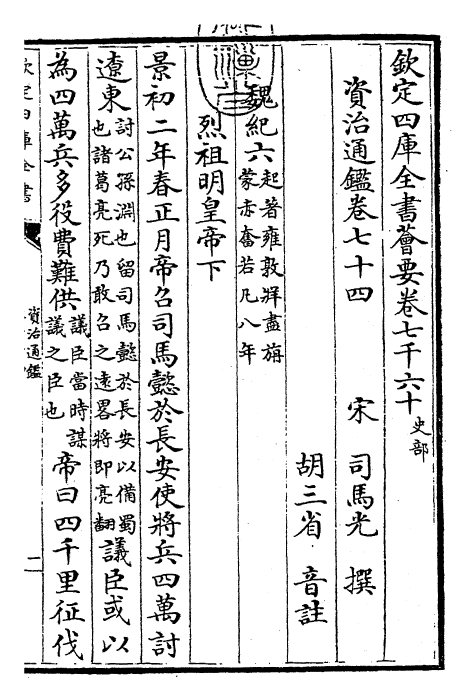 欽定四庫全書薈要卷七千六十 史部
資治通鑑卷七十四 宋 司馬光 撰
胡三省 音註
魏紀六 起著雍敦牂盡旃
蒙赤奮若凡八年
烈祖明皇帝下
景初二年春正月帝召司馬懿於長安使將兵四萬討
遼東 討公孫淵也留司馬懿於長安以備蜀
也諸葛亮死乃敢召之遠畧將即亮翻 議臣或以
為四萬兵多役費難供 議臣當時謀
議之臣也 帝曰四千里征伐
欽定四庫全書
資治通鑑
一